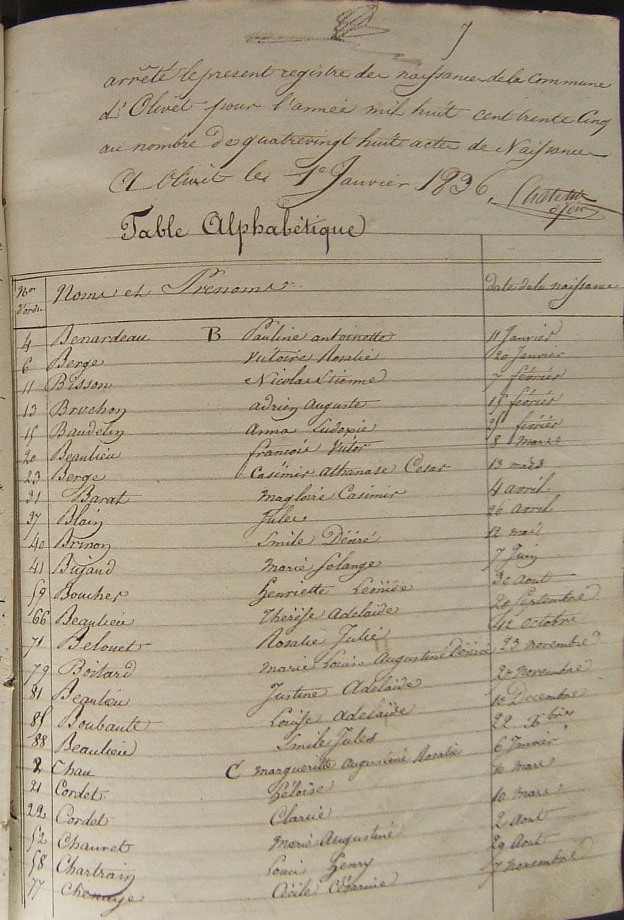 7
arrêté le present registre des naissances de la Commune
d'Olivet pour l'année mil huit cent trente Cinq
au nombre de quatrevingt huit actes de Naissance
A Olivet le 1er Janvier 1836,
Table Alphabétique
Nos d'ordre Noms et Prénoms date de la naissance
4 Benardeau B Pauline antoinette 11 Janvier
6 Berge Victoire Rosalie 20 Janvier
11 Bisson Nicolas Etienne 7 février
13 Bruchon adrien Auguste 18 février
15 Baudelin Anna Eudoxie 25 février
20 Beaulieu francois Victor 8 mars
23 Berge Casimir Athanase Cesar 13 mars
31 Barat Magloire Casimir 4 avril
37 Blain Jules 26 avril
40 Brinon Emile Désiré 12 mai
41 Bujaud Marie Solange 7 Juin
59 Boucher henriette Léonide 31 Aout
66 Beaulieu Thérèse Adelaide 20 Septembre
71 Belouet Rosalie Julie 12 octobre
79 Boitard Marie Louise Augustine Désirée 23 novembre
81 Beaulieu Justine Adelaide 20 Novembre
85 Boubault Louise Adelaide 10 Decembre
88 Beaulieu Emile Jules 22 Xbre
2 Chau C marguerite Augustine Rosalie 6 Janvier
21 Cordet héloïse 10 mars
22 Cordet Clarice 10 mars
52 Chauvet Marie Augustine 2 Aout
58 Chartrain Louis henry 29 Aout
77 Chenuye Cécile Césarine 7 Novembre